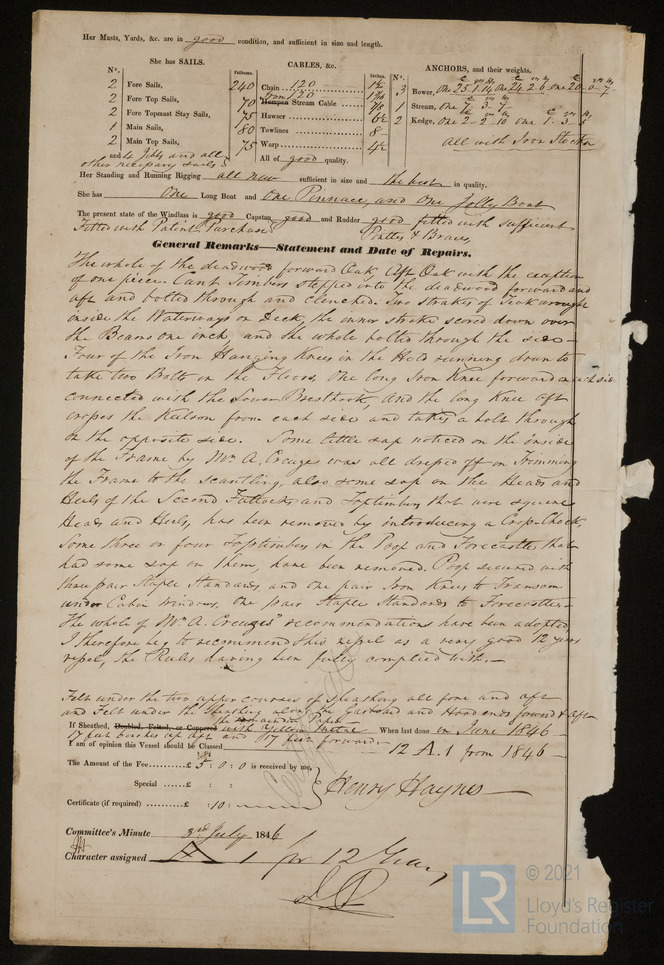 Her Masts, Yards, &c. are in good condition, and sufficient in size and length.
She has SAILS.
CABLES, &c.
ANCHORS, and their weights.
Nº.
Fathoms.
Inches.
Nº.
2 Fore Sails,
2 Fore Top Sails,
2 Fore Topmast Stay Sails,
1 Main Sails,
2 Main Top Sails,
and 4 Jibbs and all
other necessary sails
Chain 120
Iron 120
Hempen Stream Cable
Hawser
Towlines
Warp
All of good quality.
240
70
75
80
75
8
3 Bower, One
1 Stream, One 7. 3. 7
2 Kedge, One 2. 2. 10 one 1. 3. 8
All with Iron Stocks
Her Standing and Running Rigging all new sufficient in size and the best in quality.
She has One Long Boat and One Pinnace, and one Jolly Boat
The present state of the Windlass is good Capstan good and Rudder good fitted with sufficient
Fitted with Patent Purchase
Pintles & Braces
General Remarks—Statement and Date of Repairs.
The whole of the deadwood forward Oak, Aft Oak with the exception
of one piece. Cant Timbers stepped into the deadwood forward and
aft and bolted through and clenched. Two strakes of Teak wrought
inside the Waterways on Deck, the inner strake scored down over
the Beams one inch, and the whole bolted through the side—
Four of the Iron Hanging Knees in the Hold running down to
take two Bolts in the Floors, One long Iron Knee forward on each side
connected with the Lower Breasthook, and the long Knee aft
crosses the Keelson from each side and takes a bolt through
on the opposite side. Some little sap noticed on the inside
of the Frame by Mr. A. Creuze was all dressed off on Trimming
the Frame to the scantling, also some sap on the Heads and
Heels of the Second Futtocks and Toptimbers that were square
Heads and Heels, has been removed by introducing a Cross Chock,
Some three or four Toptimbers in the Poop and Forecastle, that
had some sap on them, have been removed. Poop secured with
three pair Staple Standards, and one pair Iron Knees to Transom
under Cabin Windows, One pair Staple Standards to Forecastle—
The whole of Mr. A. Creuze's recommendations have been adopted
I therefore beg to recommend this vessel as a very good 12 years
vessel, the Rules having been fully complied with.—
Felt under the two upper courses of sheathing all fore and aft
and Felt under the Sheathing along the Garboard and Hood ends forward & Aft
the remainder Paper
If Sheathed, Doubled, Felted, or Coppered with Yellow Metal When last done in June 1846
17 feet up Aft and 17 feet forward—
I am of opinion this Vessel should be Classed 12 A. 1 from 1846—
The Amount of the Fee......£ 5 : 0 : 0 is received by me,
Special ......£ : :
Certificate (if required) .........£ : 10 :
Henry Haynes
Committee's Minute 3rd July 1846
Character assigned A 1 for 12 Years
© 2021
LR
Lloyd's Register
Foundation